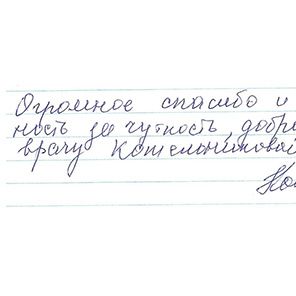 Огромное спасибо и
ность за чуткость, добро
врачу Котельниковой